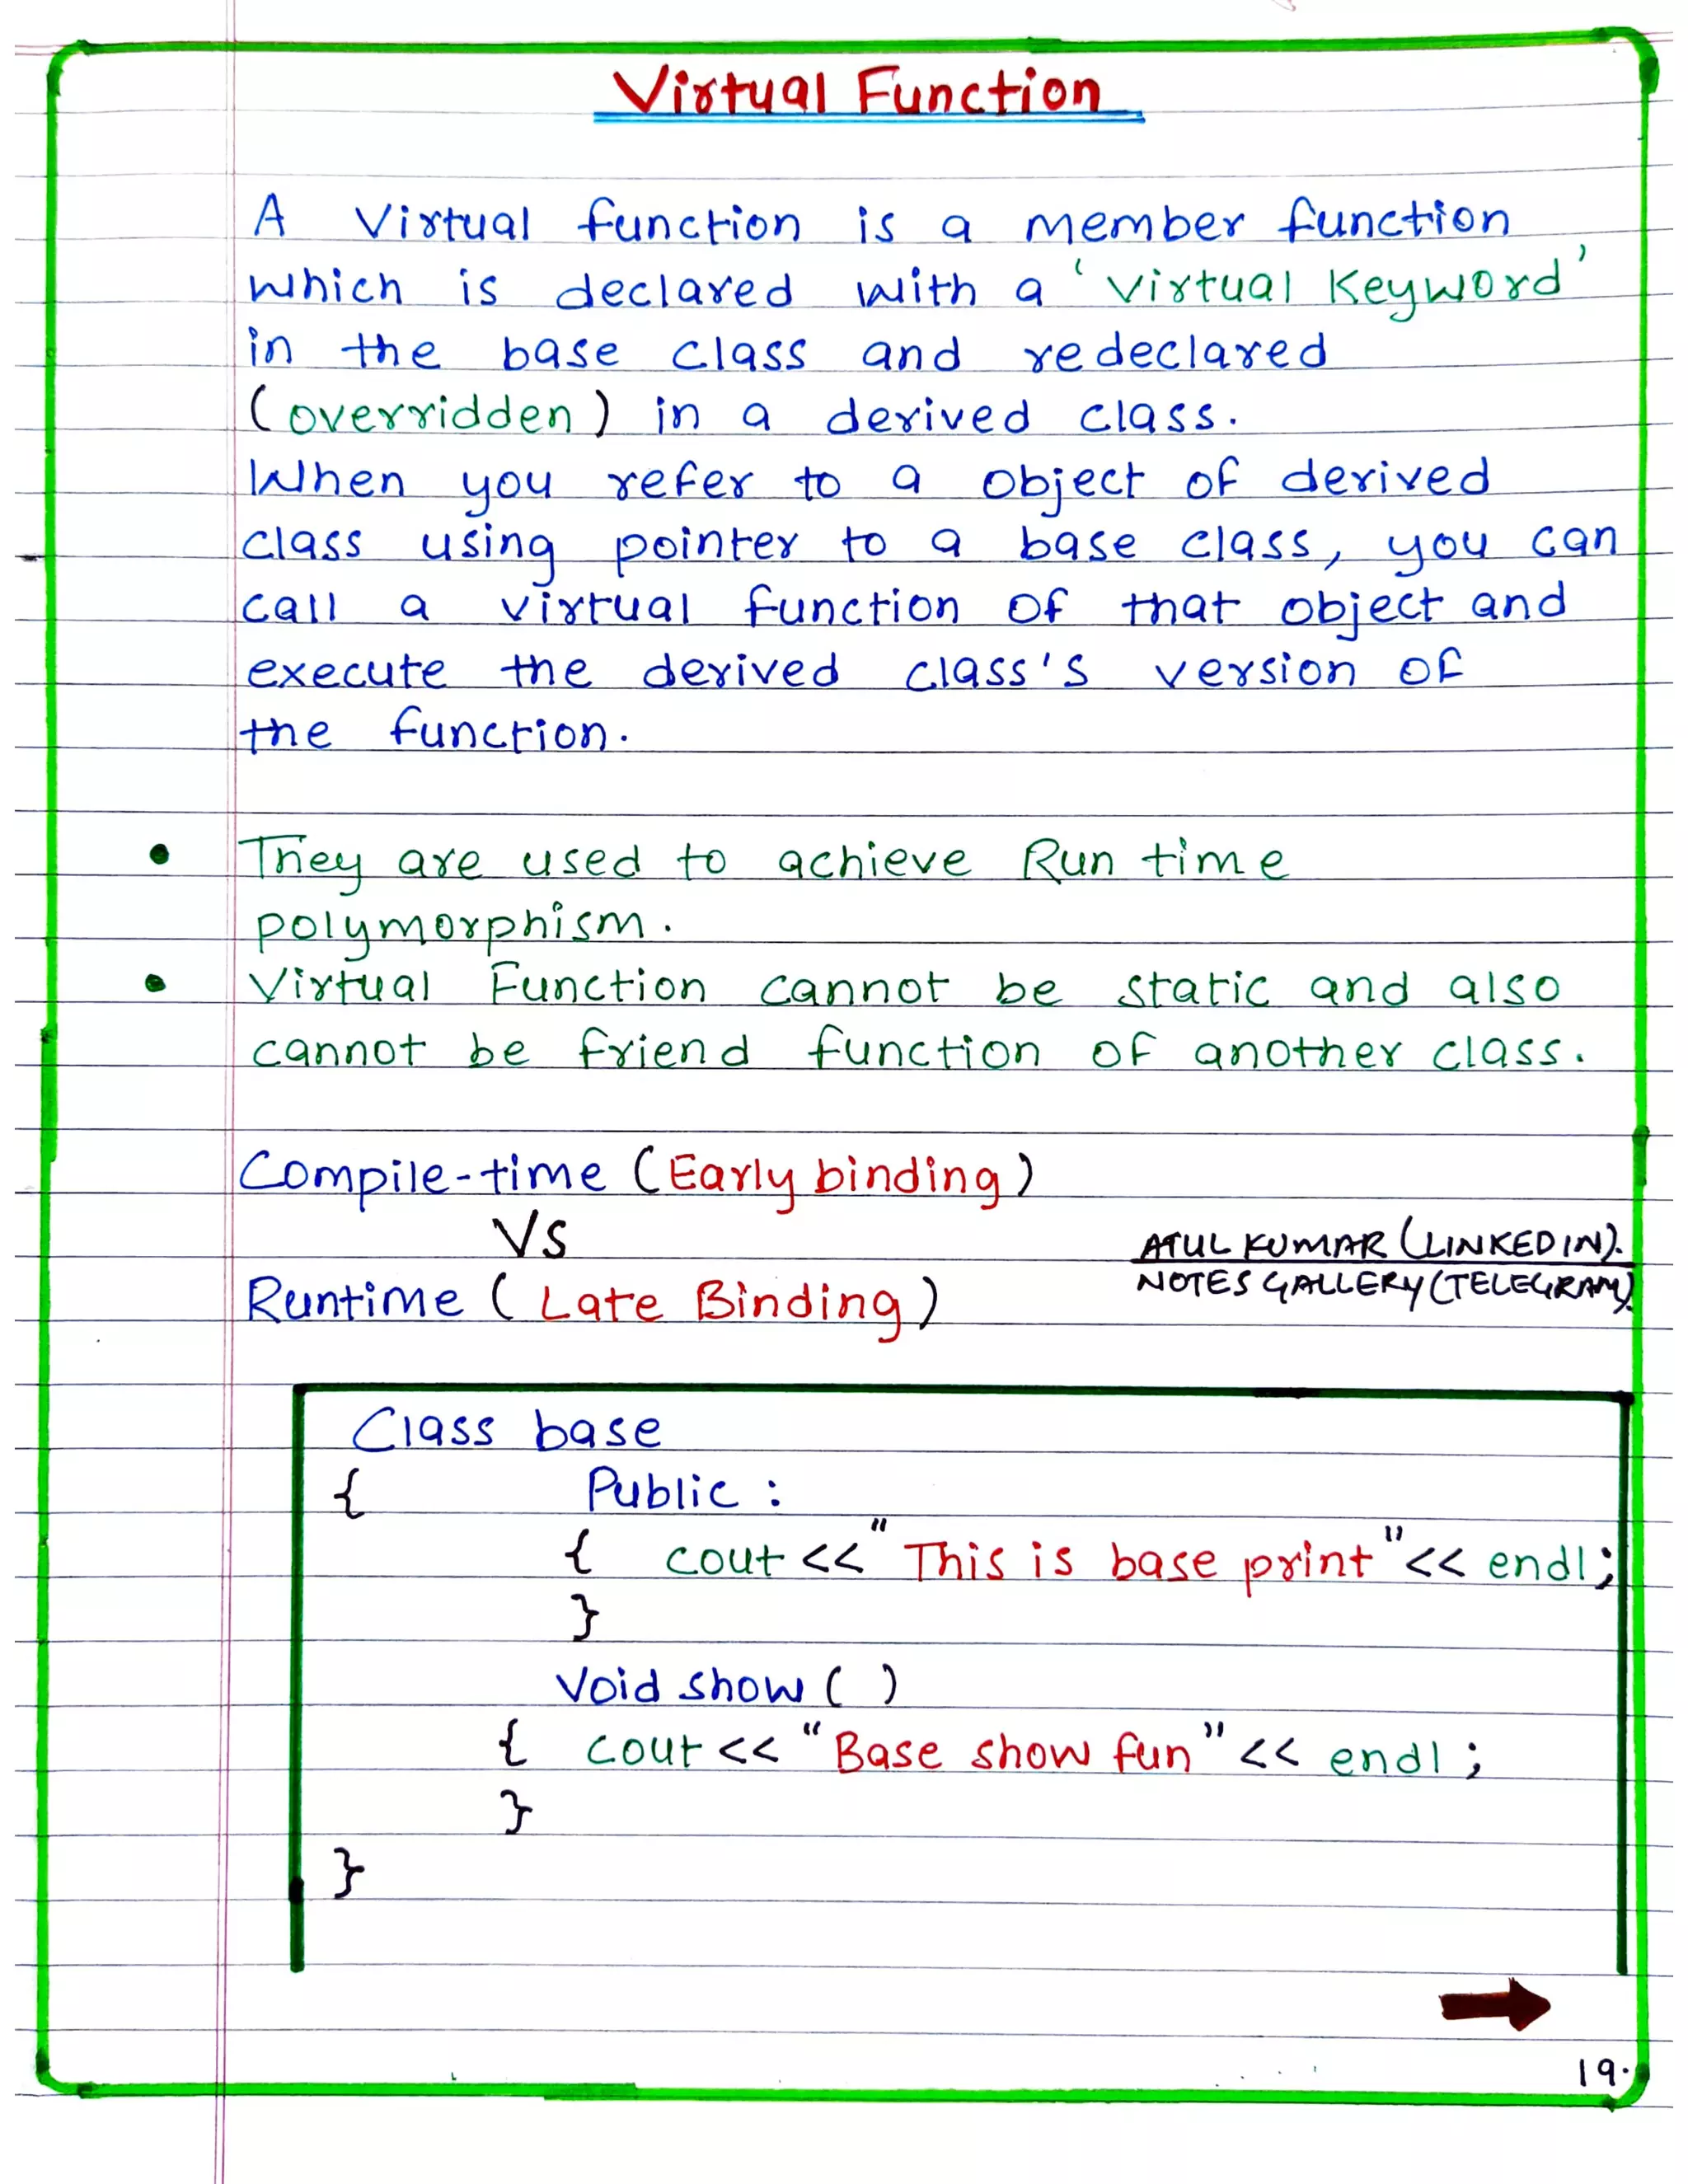 Virtual Function
A Virtual function is a member function
which is declared with a 'Virtual Keyword'
in the base class and redeclared
(overridden) in a derived class.
When you refer to a object of derived
class using pointer to a base class, you can
call a virtual function of that object and
execute the derived class's version of
the function.
• They are used to achieve Run time
polymorphism.
• Virtual Function cannot be static and also
cannot be friend function of another class.
Compile-time (Early binding)
Vs
Runtime (Late Binding)
ATUL KUMAR (LINKEDIN).
NOTES GALLERY (TELEGRAM).
Class base
{ Public :
{ cout << "This is base print" << endl;
}
Void show ( )
{ cout << "Base show fun" << endl ;
}
}
19.